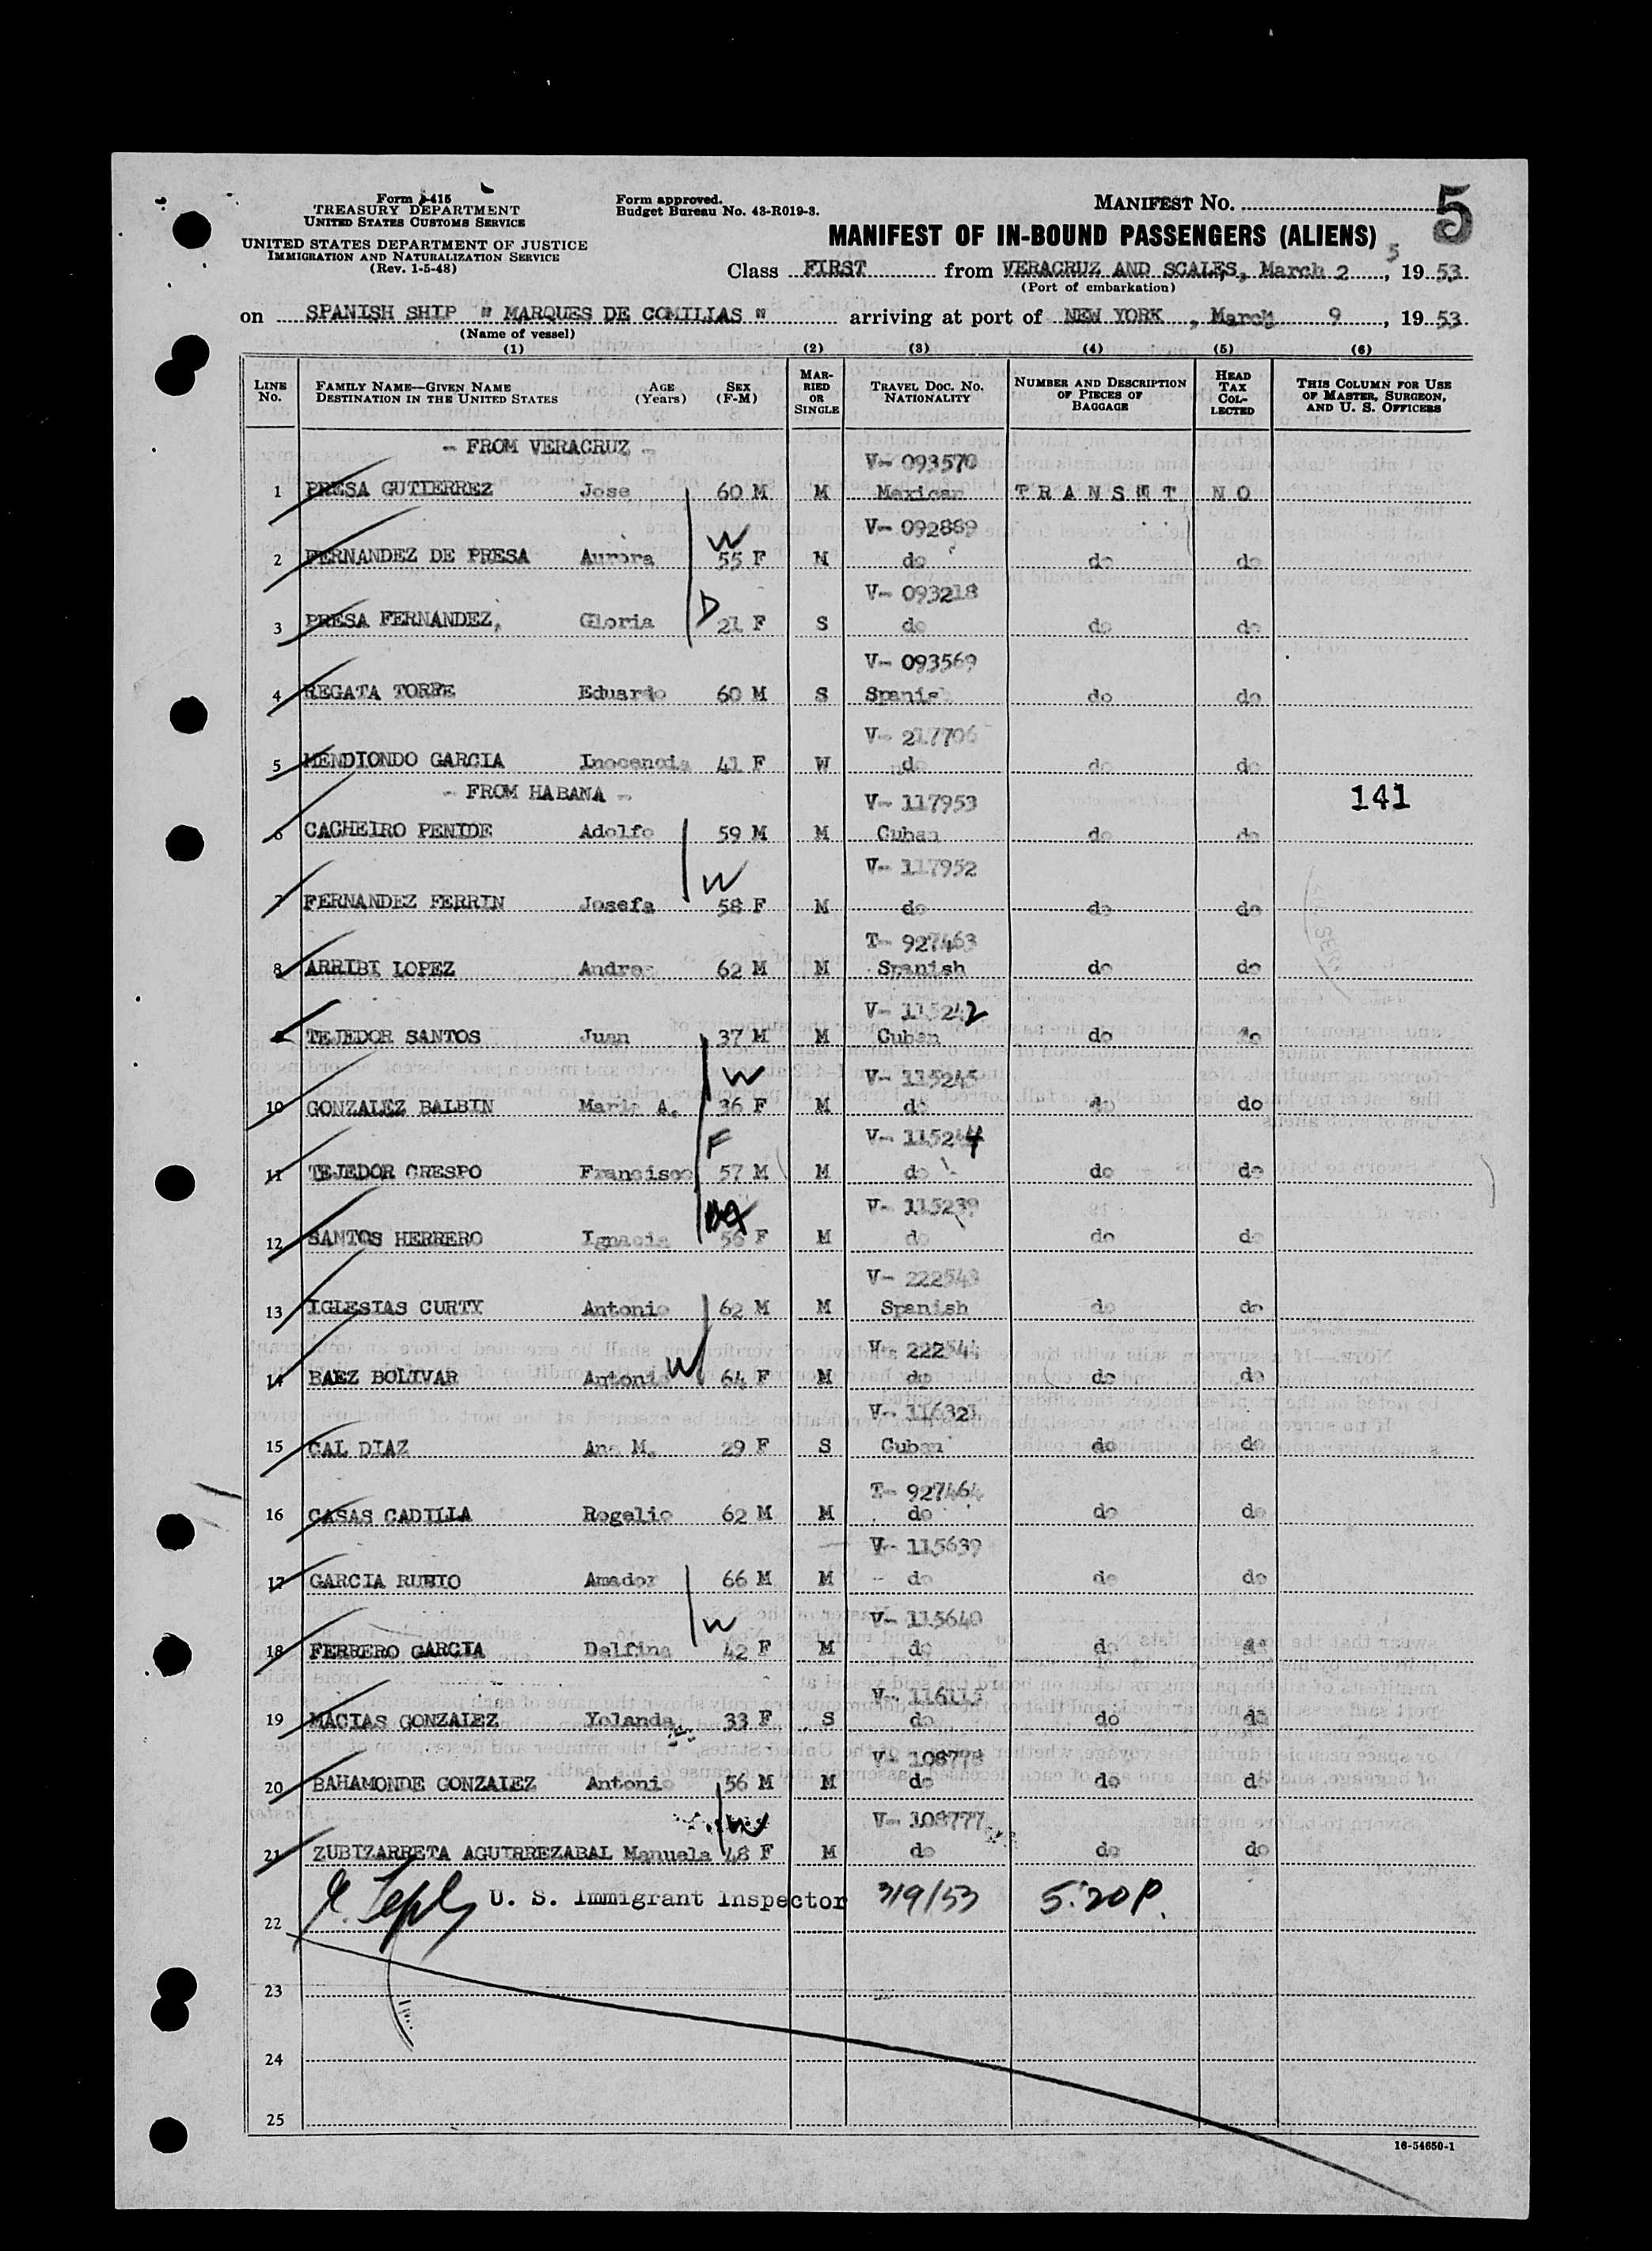 Form I-415
TREASURY DEPARTMENT
UNITED STATES CUSTOMS SERVICE
UNITED STATES DEPARTMENT OF JUSTICE
IMMIGRATION AND NATURALIZATION SERVICE
(Rev. 1-5-48)
Form approved.
Budget Bureau No. 43-R019-3.
MANIFEST No. 5
MANIFEST OF IN-BOUND PASSENGERS (ALIENS)
5
Class FIRST from VERACRUZ AND SCALES, March 2, 1953
(Port of embarkation)
on SPANISH SHIP " MARQUES DE COMILLAS " arriving at port of NEW YORK, March 9, 1953
(Name of vessel)
(1) (2) (3) (4) (5) (6)
LINE No. FAMILY NAME—GIVEN NAME DESTINATION IN THE UNITED STATES AGE (Years) SEX (F-M) MARRIED OR SINGLE TRAVEL DOC. No. NATIONALITY NUMBER AND DESCRIPTION OF PIECES OF BAGGAGE HEAD TAX COLLECTED THIS COLUMN FOR USE OF MASTER, SURGEON, AND U. S. OFFICERS
- FROM VERACRUZ -
V- 093570
1 PRESA GUTIERREZ Jose 60 M M Mexican TRANSIT NO
W V- 092889
2 FERNANDEZ DE PRESA Aurora 55 F M do do do
D V- 093218
3 PRESA FERNANDEZ, Gloria 21 F S do do do
V- 093569
4 REGATA TORRE Eduardo 60 M S Spanish do do
V- 217706
5 MENDIONDO GARCIA Inocencia 41 F W do do do
- FROM HABANA -
V- 117953 141
6 CACHEIRO PENIDE Adolfo 59 M M Cuban do do
W V- 117952
7 FERNANDEZ FERRIN Josefa 58 F M do do do
T- 927463
8 ARRIBI LOPEZ Andres 62 M M Spanish do do
V- 115242
9 TEJEDOR SANTOS Juan 37 M M Cuban do do
W V- 115245
10 GONZALEZ BALBIN Maria A. 36 F M do do do
F V- 115244
11 TEJEDOR CRESPO Francisco 57 M M do do do
V- 115239
12 SANTOS HERRERO Ignacia 56 F M do do do
V- 222543
13 IGLESIAS CURTY Antonio 62 M M Spanish do do
W V- 222544
14 BAEZ BOLIVAR Antonia 64 F M do do do
V- 116321
15 CAL DIAZ Ana M. 29 F S Cuban do do
T- 927464
16 CASAS CADILLA Rogelio 62 M M do do do
V- 115639
17 GARCIA RUBIO Amador 66 M M do do do
W V- 115640
18 FERRERO GARCIA Delfina 42 F M do do do
V- 116113
19 MACIAS GONZALEZ Yolanda 33 F S do do do
V- 108778
20 BAHAMONDE GONZALEZ Antonio 56 M M do do do
W V- 108777
21 ZUBIZARRETA AGUIRREZABAL Manuela 48 F M do do do
U. S. Immigrant Inspector 3/9/53 5:20 P.
22
23
24
25
16-54650-1